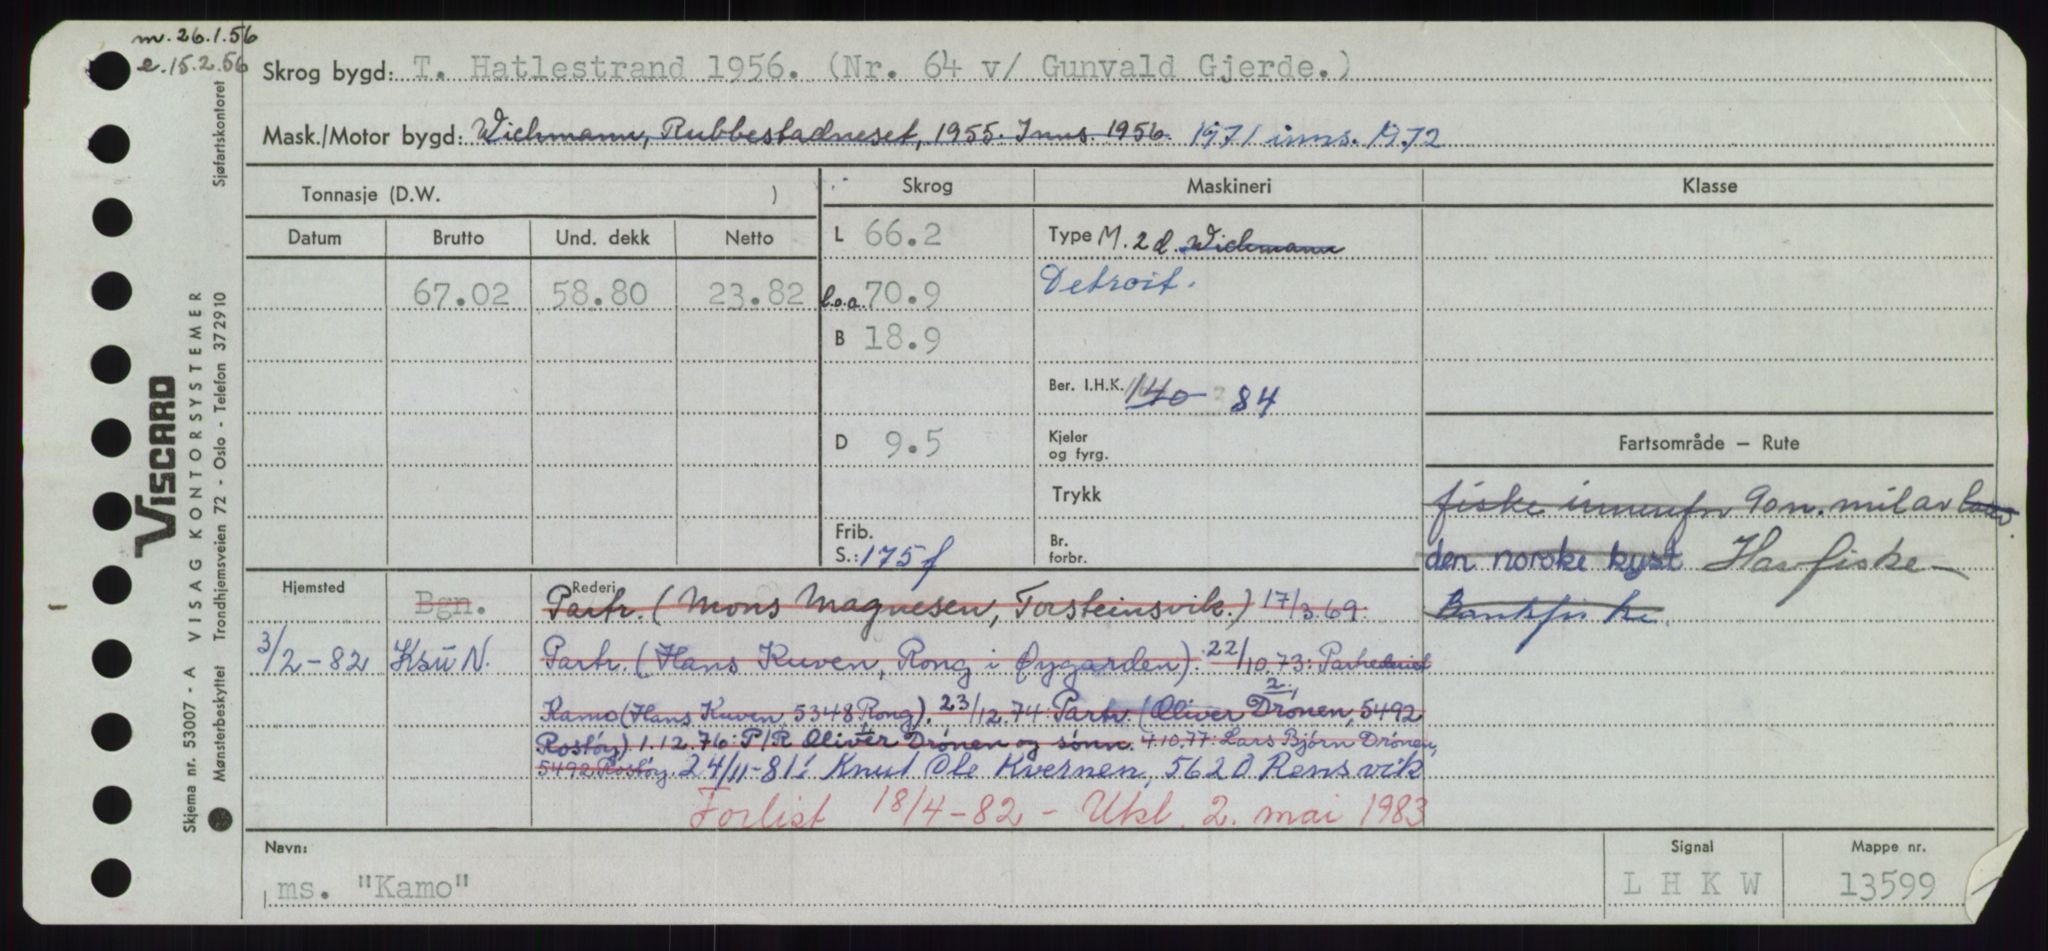 m. 26.1.56
e. 15.2.56
Skrog bygd: T. Hatlestrand 1956. (Nr. 64 v/ Gunvald Gjerde.)
Mask./Motor bygd: Wichmann, Rubbestadneset, 1955. Inns. 1956. 1971 inns. 1972
Tonnasje (D.W. )
Skrog
Maskineri
Klasse
Datum Brutto Und. dekk Netto
67.02 58.80 23.82
L 66.2
l.o.a. 70.9
B 18.9
D 9.5
Frib.
S.: 175 f
Type M. 2 d. Wichmann
Detroit.
Ber. I.H.K. 140 84
Kjeler
og fyrg.
Trykk
Br.
forbr.
Fartsområde — Rute
fiske innenfor 90 n. mil av
den norske kyst Havfiske
Bankfiske.
Hjemsted
Bgn.
3/2-82 Ksu N.
Rederi
Partr. (Mons Magnesen, Torsteinsvik.) 17/3.69:
Partr. (Hans Kuven, Rong i Øygarden). 22/10.73: Partrederiet
Kamo (Hans Kuven, 5348 Rong). 23/12.74: Partr. (Oliver Drönen, 5492
Rostöy) 1.12.76: P/R Oliver Drönen og sönn. 4.10.77: Lars Bjørn Drönen,
5492 Rostöy. 24/11-81: Knut Ole Kvernen, 5620 Rensvik
Forlist 18/4-82 - Utkl. 2. mai 1983
Navn:
ms. "Kamo"
Signal
L H K W
Mappe nr.
13599
VISCARD
Skjema nr. 53007 - A VISAG KONTORSYSTEMER
Mønsterbeskyttet Trondhjemsveien 72 - Oslo - Telefon 372910
Sjøfartskontoret